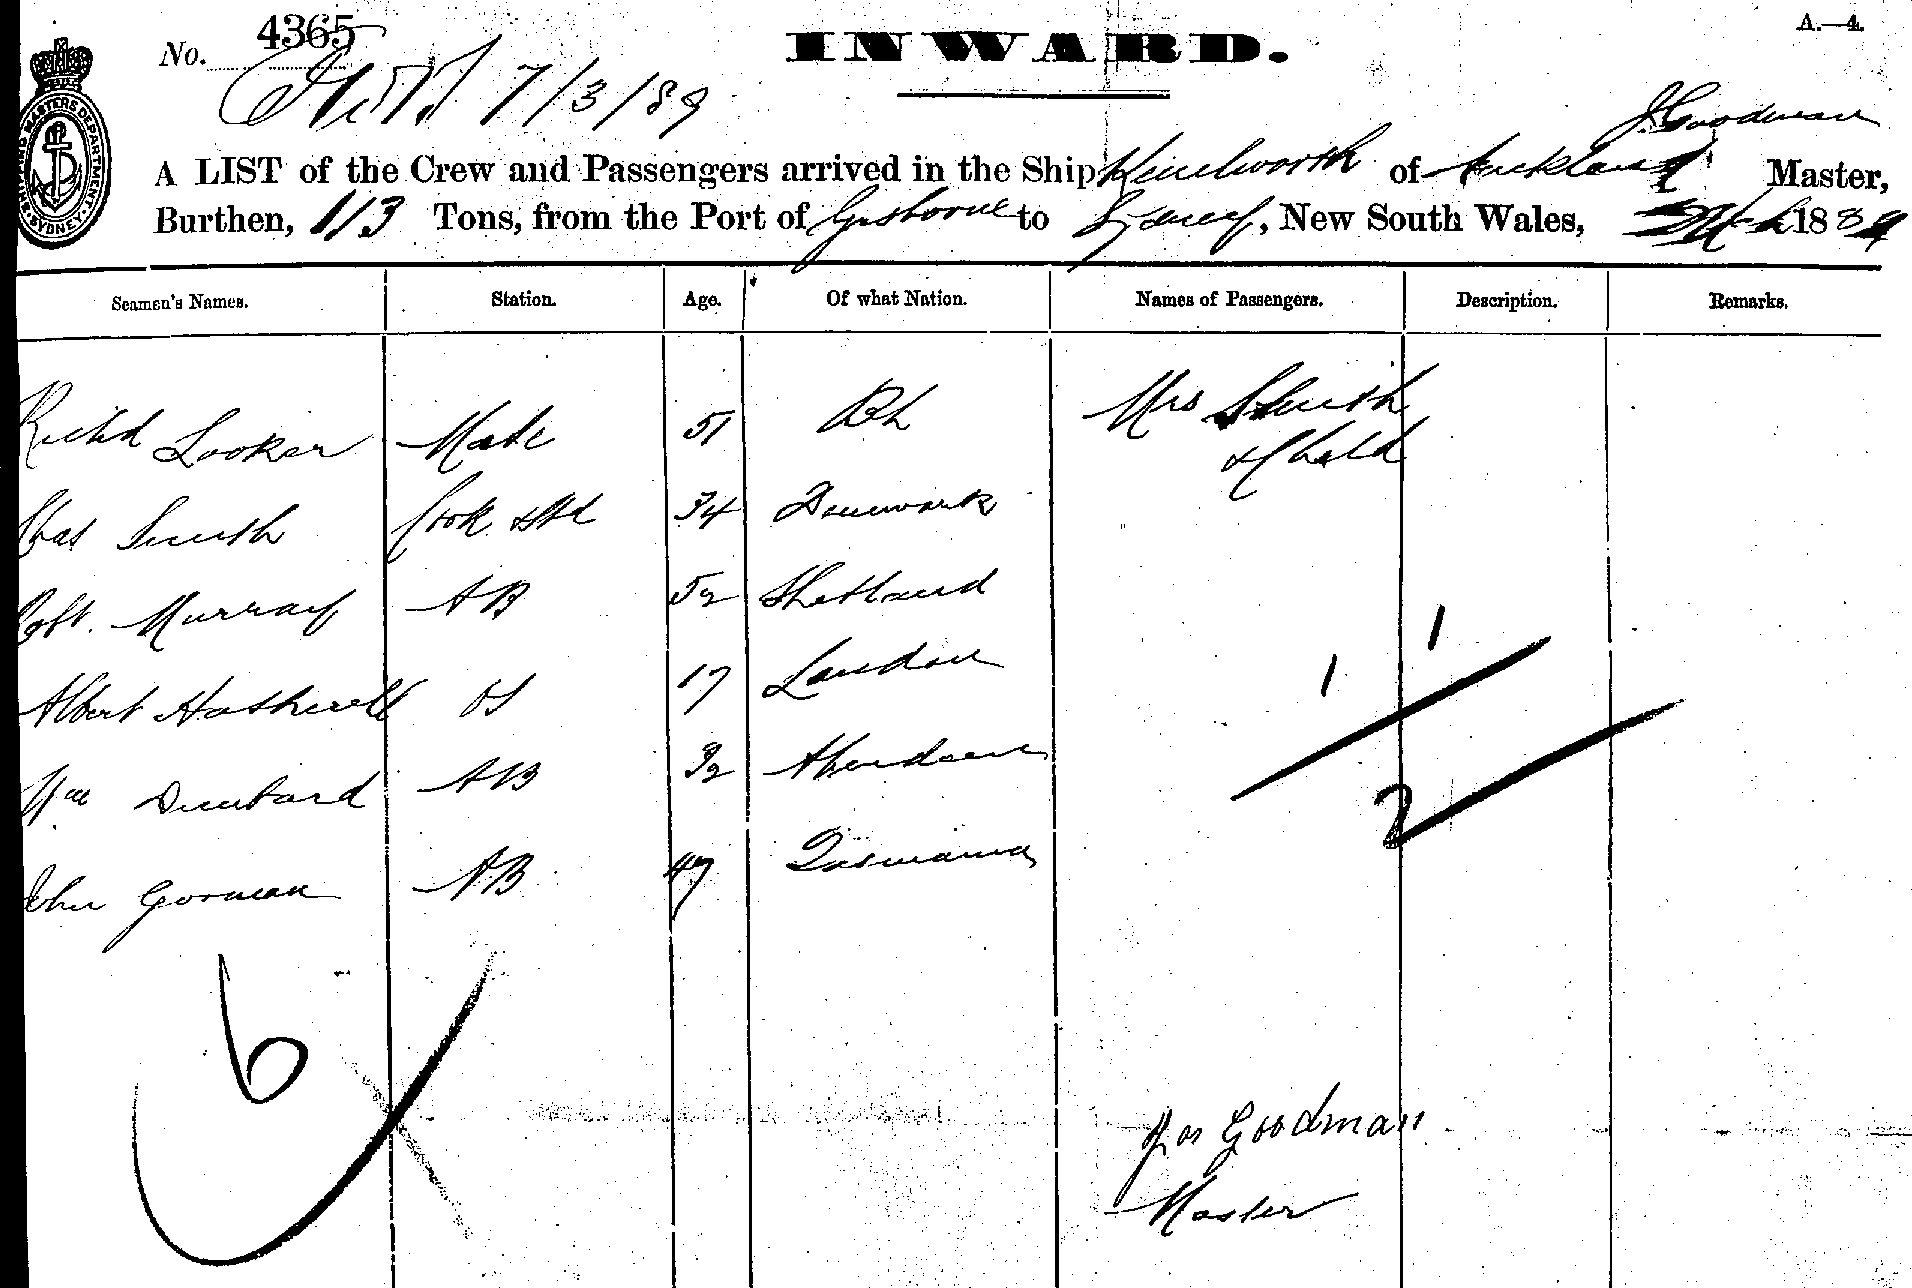 No. 4365
INWARD.
A.—4.
7/3/89
J. Goodman
A LIST of the Crew and Passengers arrived in the Ship Kenilworth of Auckland Master,
Burthen, 113 Tons, from the Port of Gisborne to Sydney, New South Wales, 1889
Seamen's Names. Station. Age. Of what Nation. Names of Passengers. Description. Remarks.
Richd Looker Mate 51 Mrs Smith
& Child
Chas Smith Cook & Std 34 Denmark
Robt. Murray AB 52 Shetland
Albert Hashwell OS 17 London
1 1
Wm Dunbard AB 32 Aberdeen
2
John Gorman AB 47 Tasmania
6
Jos Goodman
Master
SYDNEY